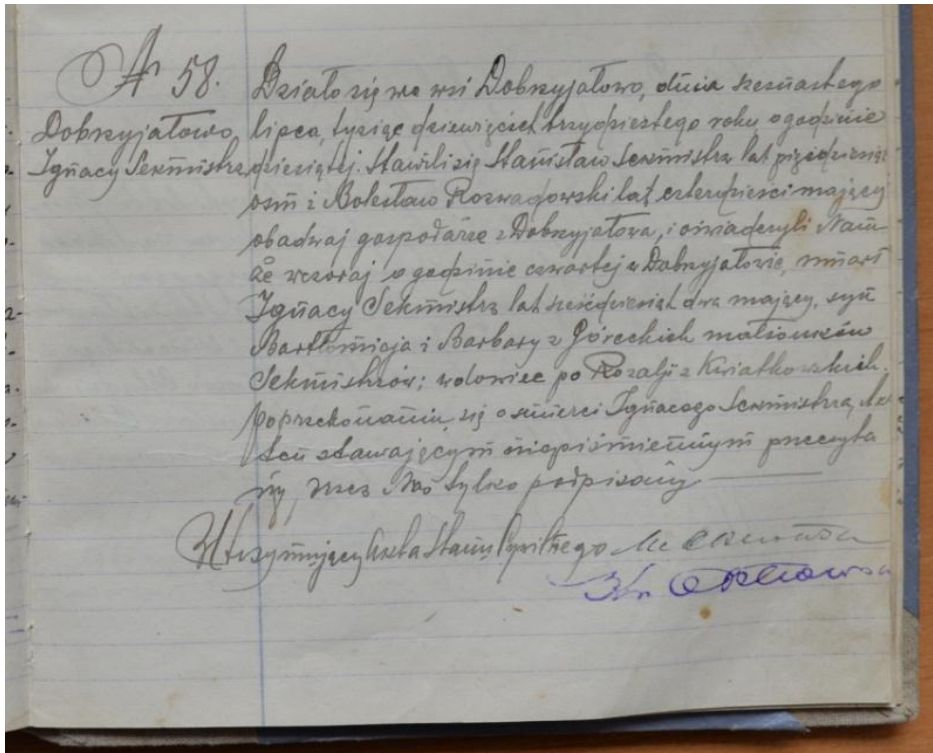 № 58.
Dobrzyjałowo,
Ignacy Sekmistrz
Działo się we wsi Dobrzyjałowo, dnia szesnastego
lipca, tysiąc dziewięćset trzydziestego roku o godzinie
dziesiątej. Stawili się Stanisław Sekmistrz lat pięćdziesiąt
osm i Bolesław Rozwadowski lat czterdzieści mający
obadwaj gospodarze z Dobrzyjałowa, i oświadczyli Nam
że wczoraj o godzinie czwartej w Dobrzyjałowie, umarł
Ignacy Sekmistrz lat sześćdziesiąt dwa mający, syn
Bartłomieja i Barbary z Góreckich małżonków
Sekmistrzów; wdowiec po Rozalji z Kwiatkowskich.
Po przekonaniu się o śmierci Ignacego Sekmistrza, Akt
ten stawającym niepiśmiennym przeczyta
ny, przez Nas tylko podpisany
Utrzymujący Akta Stanu Cywilnego